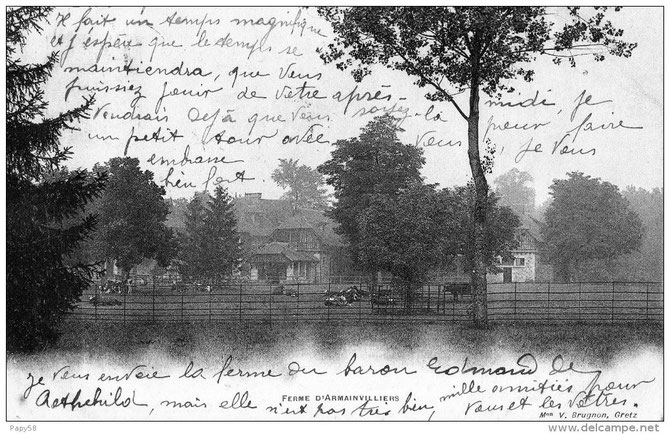 Il fait un temps magnifique
et j'espère que le temps se
maintiendra, que Vous
puissiez jouir de Votre après-midi, je
Vendrais Déjà que Vous soyez là
un petit tour avec Vous pour faire
embrasse, je Vous
bien fort.
Je Vous envoie la ferme du baron Edmond de
Rothschild, mais elle n'est pas très bien, mille amitiés pour
Vous et les Vôtres.
FERME D'ARMAINVILLIERS
Mon V. Brugnon, Gretz
©Papy58
www.delcampe.net